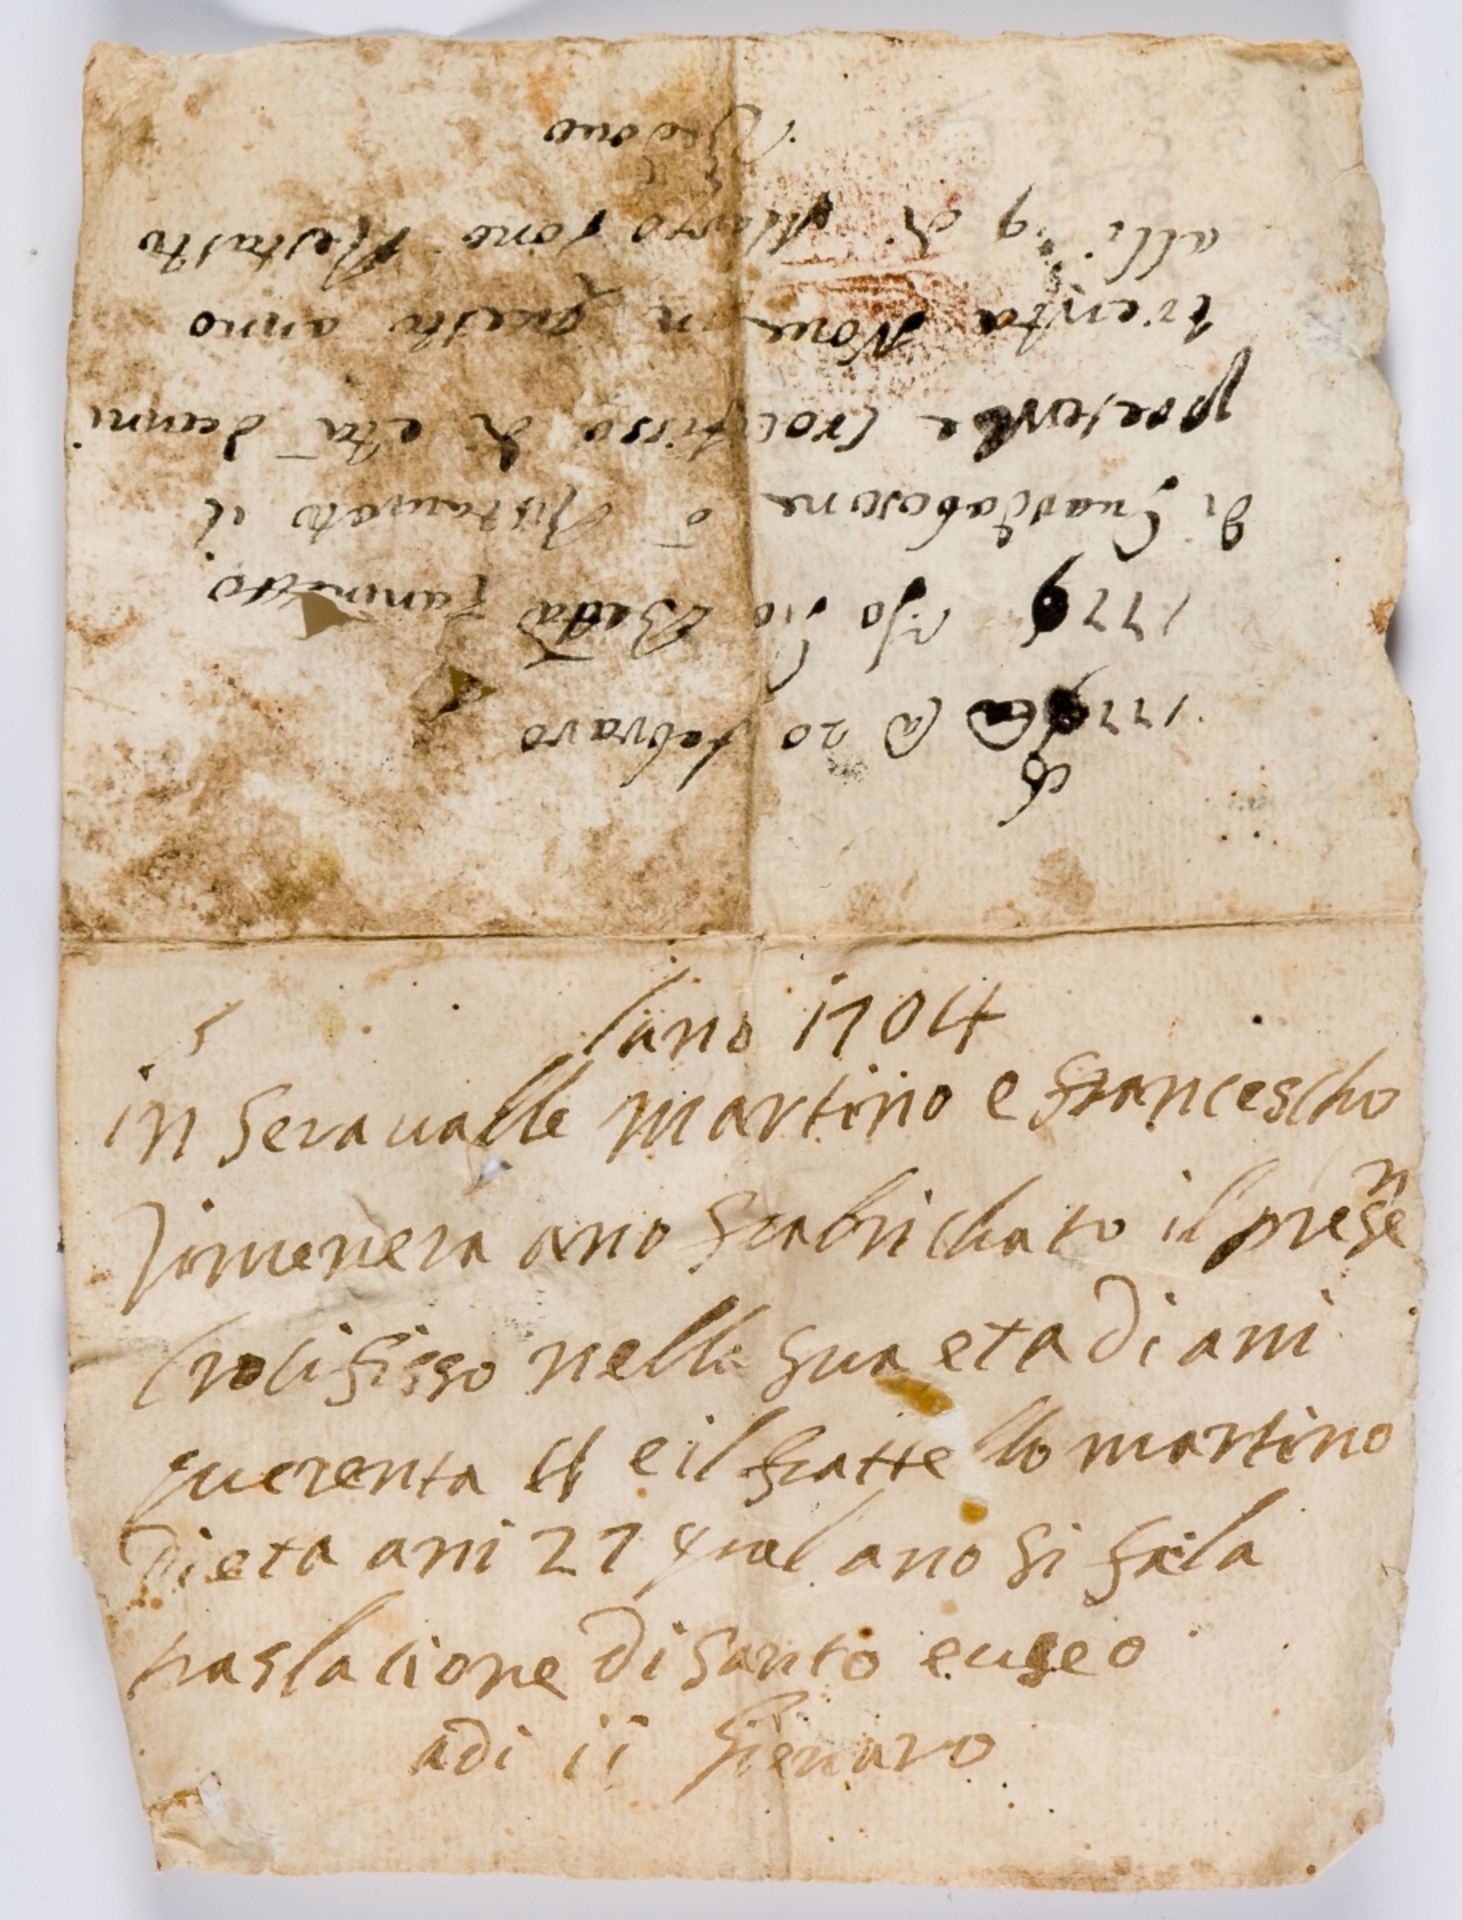 lano 1704
in Seravalle martino e francescho
ano frabrichato il presene
Crolifisso nella sua eta di ani
querenta 44 e il frattello martino
di eta ani 27 qual ano si fa la
traslacione di Santo euseo
adi ii Gienaro
1779 a 20 febraro
1779 Io Gio Batta
di Guardabosone ò ristaurato il
presente Crocifisso di età d'anni
trenta Nove in questo anno
alli 9 di Marzo sono